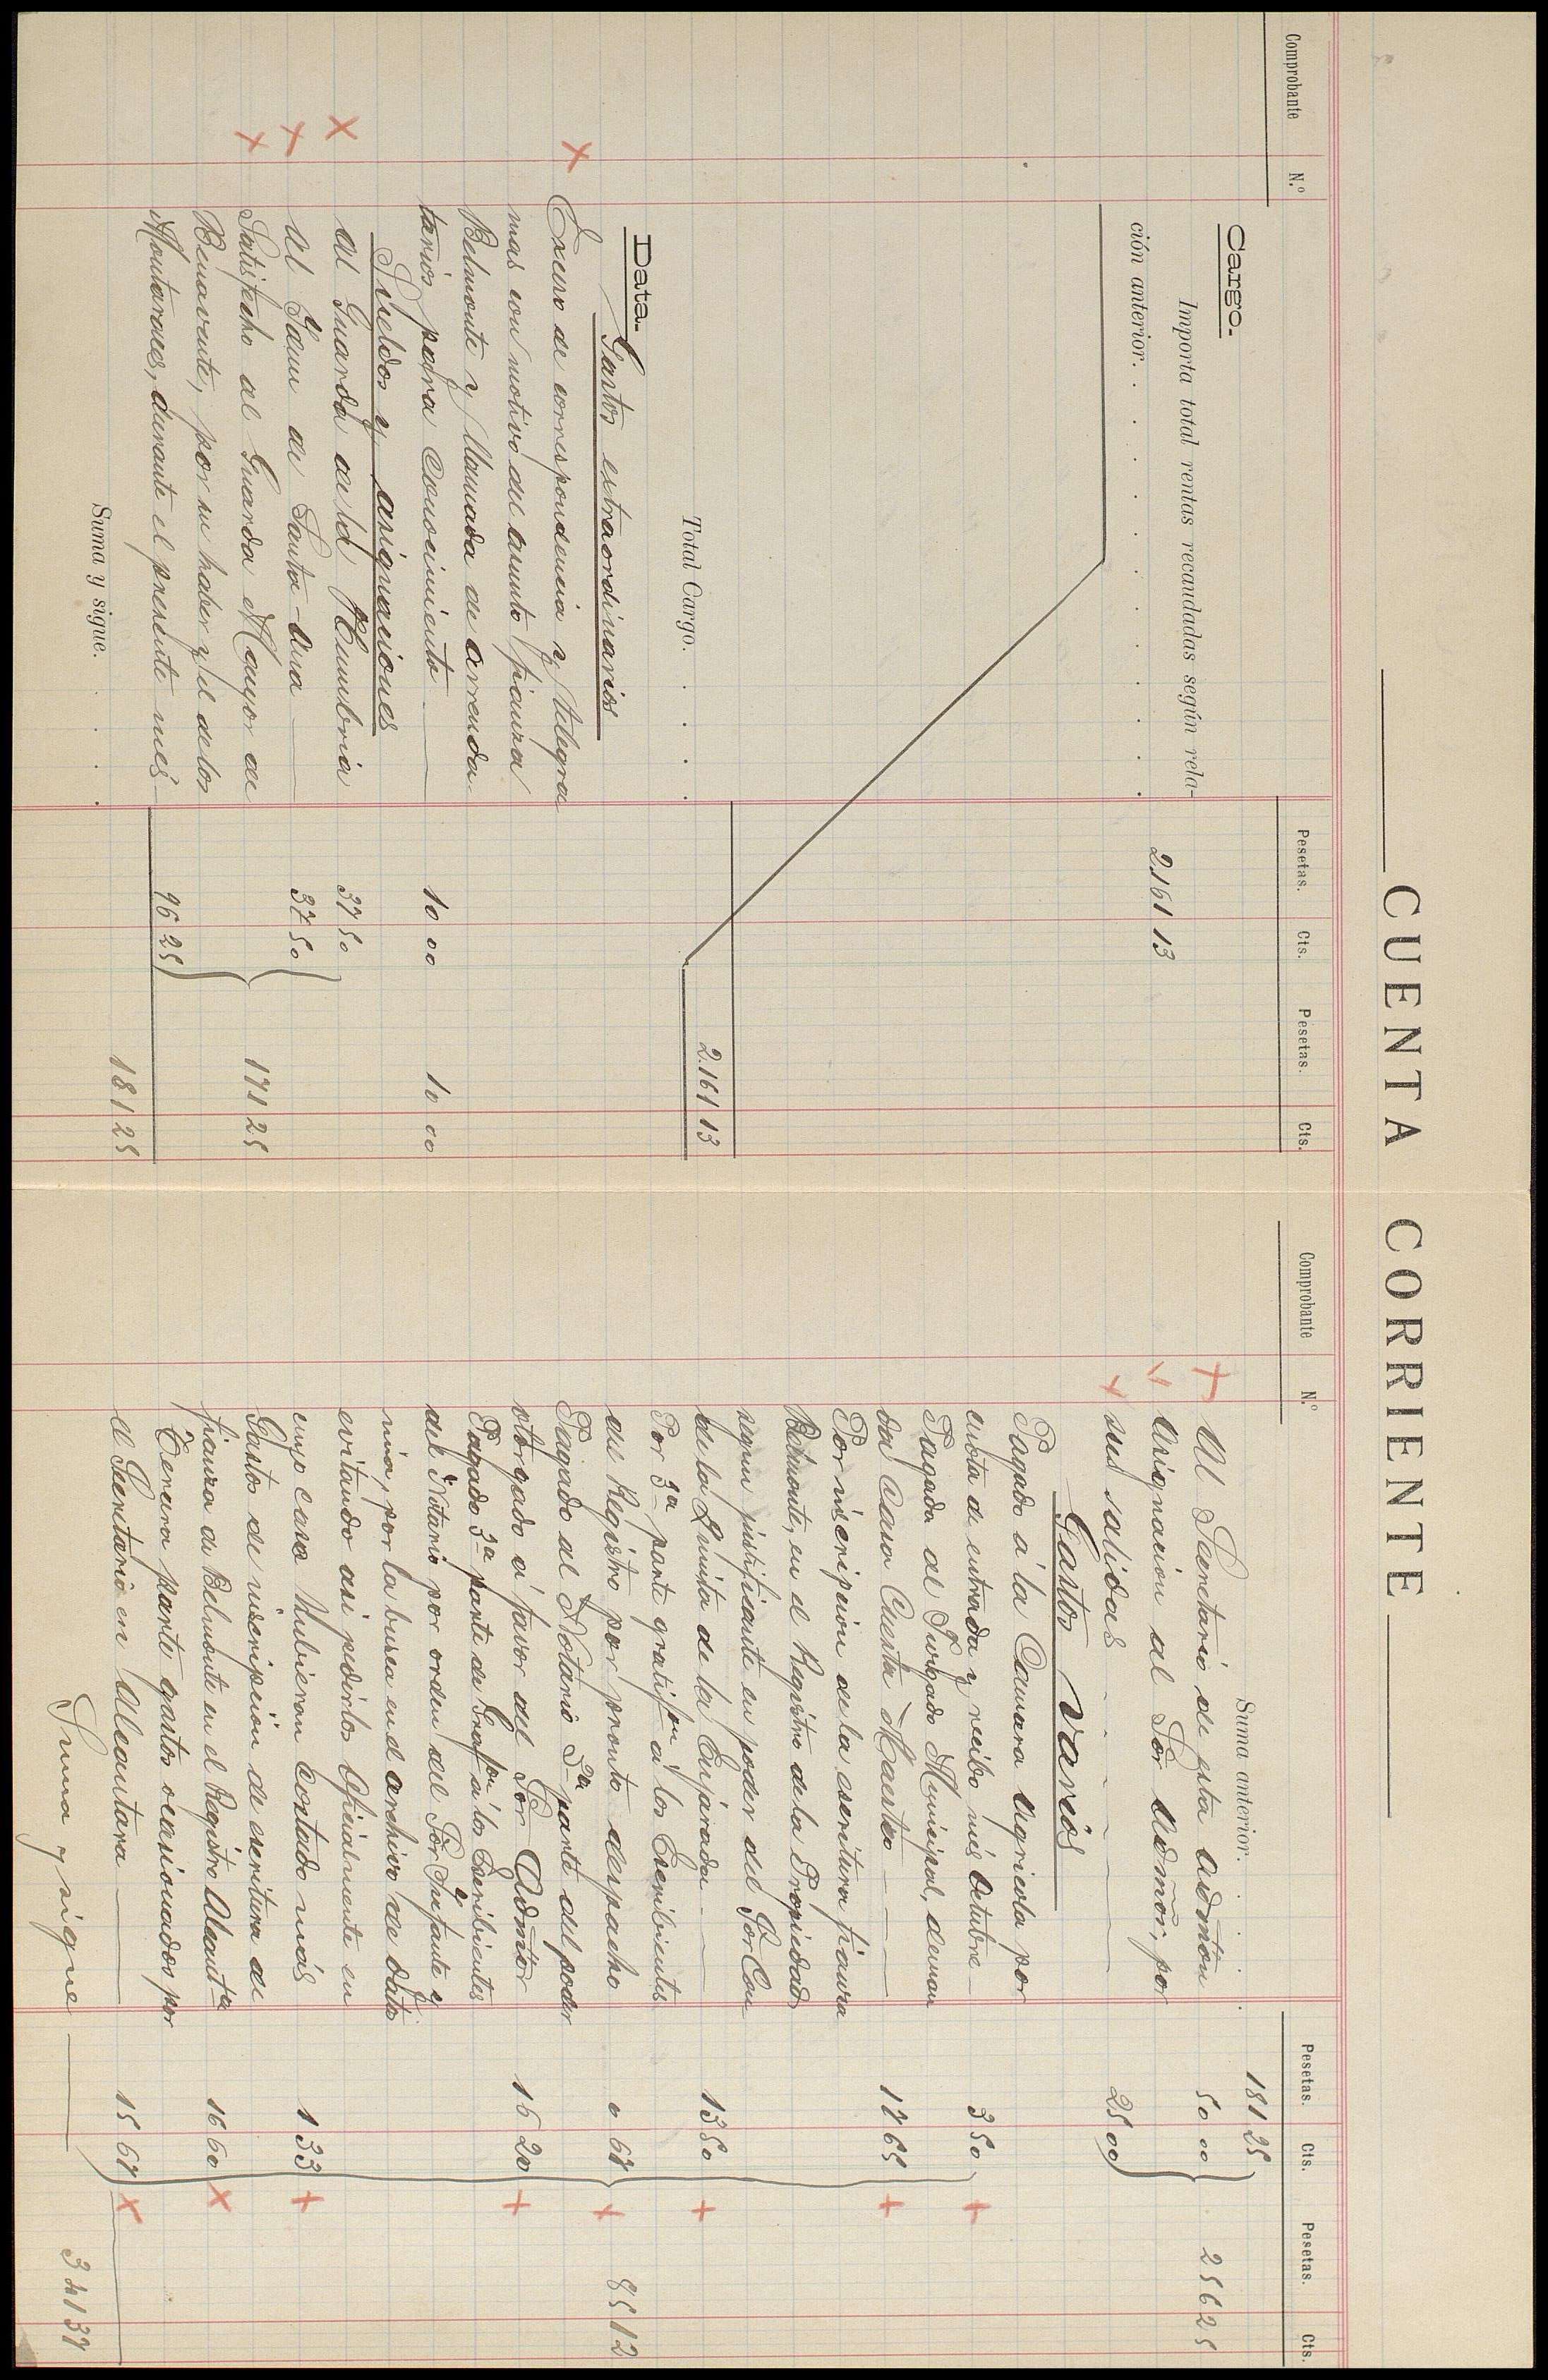 CUENTA CORRIENTE
Comprobante N.º Pesetas. Cts. Pesetas. Cts.
Cargo.
Importa total rentas recaudadas según rela-
ción anterior. . . . . . . . . . 2.161 13
Total Cargo. . . . . 2.161 13
Data.
Gastos extraordinarios
Exceso de correspondencia y telegra
mas con motivo del asunto fianza
Belmonte y llamada de arrenda-
tarios para conocimiento 10 00 10 00
Sueldos y asignaciones
Al Guarda de la Humbria 37 50
Al Idem de Santa-Ana 37 50
Satisfecho al Guarda Mayor de
Benavente, por su haber y el de los
Montaraces, durante el presente mes 96 25 171 25
Suma y sigue. . . . 181 25
Comprobante N.º Pesetas. Cts. Pesetas. Cts.
Suma anterior. . . . 181 25
Al Secretario de esta Admton 50 00
Asignación al Sor Admor, por
sus salidas 25 00 256 25
Gastos varios
Pagado á la Camara Agricola por
cuota de entrada y recibo mes Octubre 3 50
Pagada al Juzgado Municipal, deman
da casa Cuesta Mastro 17 65
Por inscripción de la escritura fianza
Belmonte, en el Registro de la Propiedad
segun justificante en poder del Sor Con
de la Quinta de la Enjarada 13 50
Por 3ª parte gratifon á los Escribientes
del Registro por pronto despacho 0 67
Pagado al Notario 3ª parte del poder
otorgado á favor del Sor Admtor 16 20
Pagado 3ª parte de Grafon á los Escribientes
del Notario por orden del Sor Infante y
mia, por la busca en el archivo de datos
evitando asi pedirlos oficialmente en
cuyo caso hubieran costado más 1 33
Gastos de inscripción de escritura de
fianza de Belmonte en el Registro Alcantª 16 60
Tercera parte gastos ocasionados por
el Secretario en Alcantara 15 67 85 12
Suma y sigue 341 37